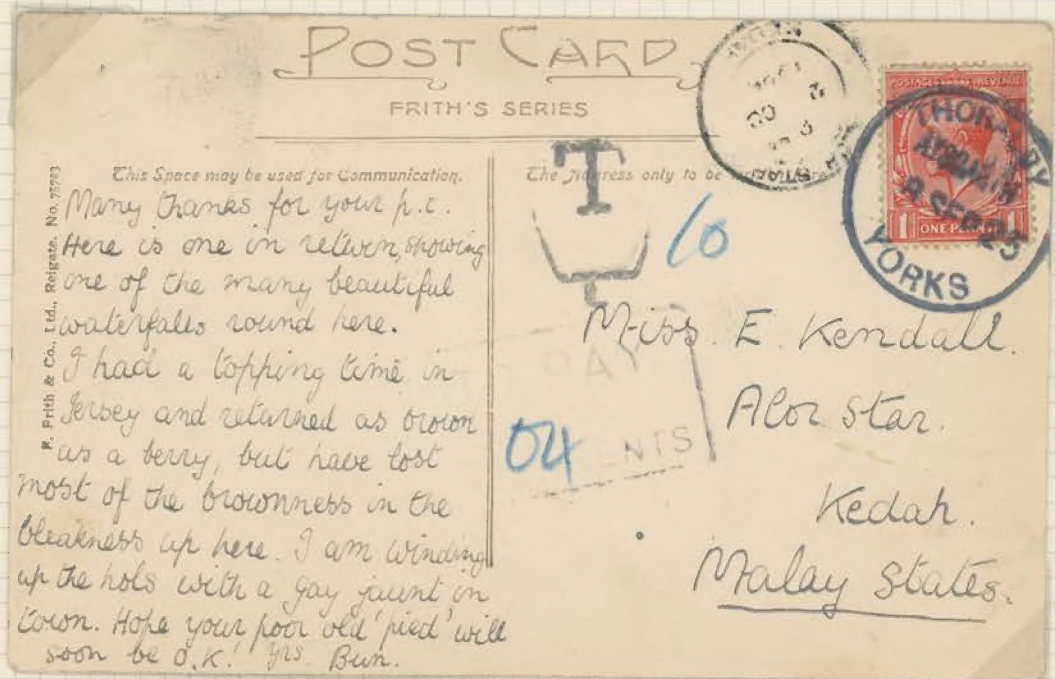 POST CARD
FRITH'S SERIES
This Space may be used for Communication.
The Address only to be
F. Frith & Co., Ltd., Reigate. No. 75783
Many thanks for your p.c.
Here is one in return, showing
one of the many beautiful
waterfalls round here.
I had a topping time in
Jersey and returned as brown
as a berry, but have lost
most of the brownness in the
bleakness up here. I am winding
up the hols with a gay jaunt in
town. Hope your poor old 'pied' will
soon be O.K. Yrs Bun.
T
10
PAY
04
ENTS
Miss. E. Kendall.
Alor Star.
Kedah.
Malay States.
POSTAGE REVENUE
1 ONE PENNY 1
YORKS